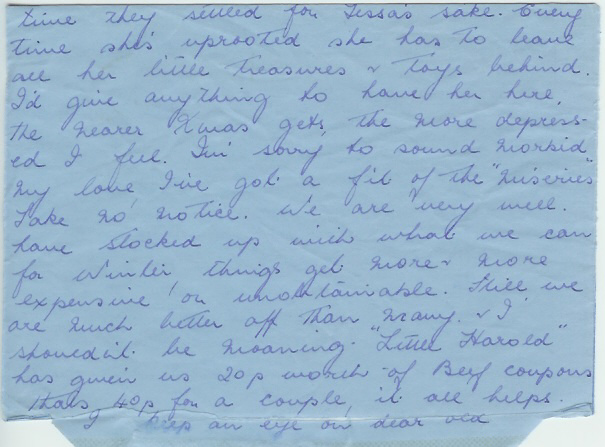 time they settled for Tessa's sake. Every
time she's uprooted she has to leave
all her little treasures & toys behind.
I'd give anything to have her here,
the nearer Xmas gets, the more depress-
ed I feel. I'm sorry to sound morbid
my love I've got a fit of the "miseries"
Take no notice. We are very well.
have stocked up with what we can
for Winter things get more & more
expensive or unobtainable. Still we
are much better off than many. & I
shouldn't be moaning. "Little Harold"
has given us 20p worth of Beef coupons
thats 40p for a couple it all helps.
I keep an eye on dear old